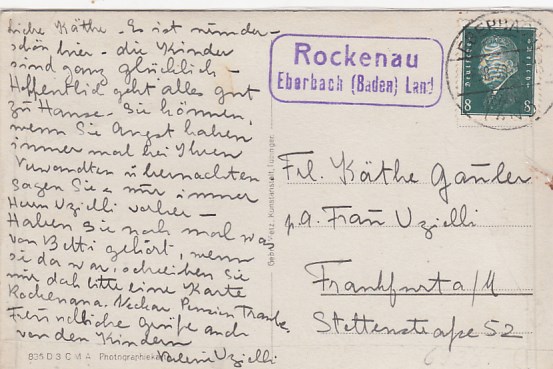 Liebe Käthe - Es ist wunder-
schön hier - die Kinder
sind ganz glücklich -
Hoffentlich geht alles gut
zu Hause. Sie können,
wenn Sie Angst haben
immer mal bei Ihren
Verwandten übernachten
sagen Sie es nur immer
Herrn Uzielli vorher -
Haben Sie noch mal was
von Betti gehört, wenn
sie da war, schreiben Sie
mir doch bitte eine Karte
Rockenau. Neckar Pension
Freundliche Grüße auch
von den Kindern
Uzielli
835 D 3 C M A Photographie
Gebr. Metz, Kunstanstalt, Tübingen
Rockenau
Eberbach (Baden) Land
Deutsches Reich
8 8
Frl. Käthe Gauler
p.a. Frau Uzielli
Frankfurt a/M
Stettenstraße 52